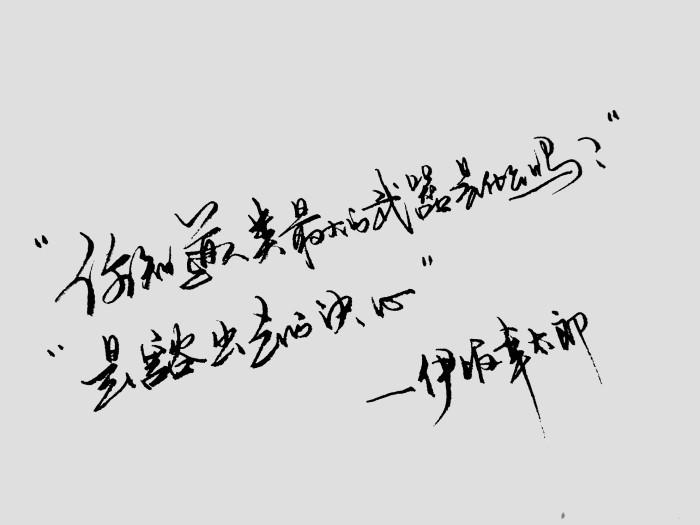 “你知道人类最大的武器是什么吗？”
“是豁出去的决心”
—伊坂幸太郎